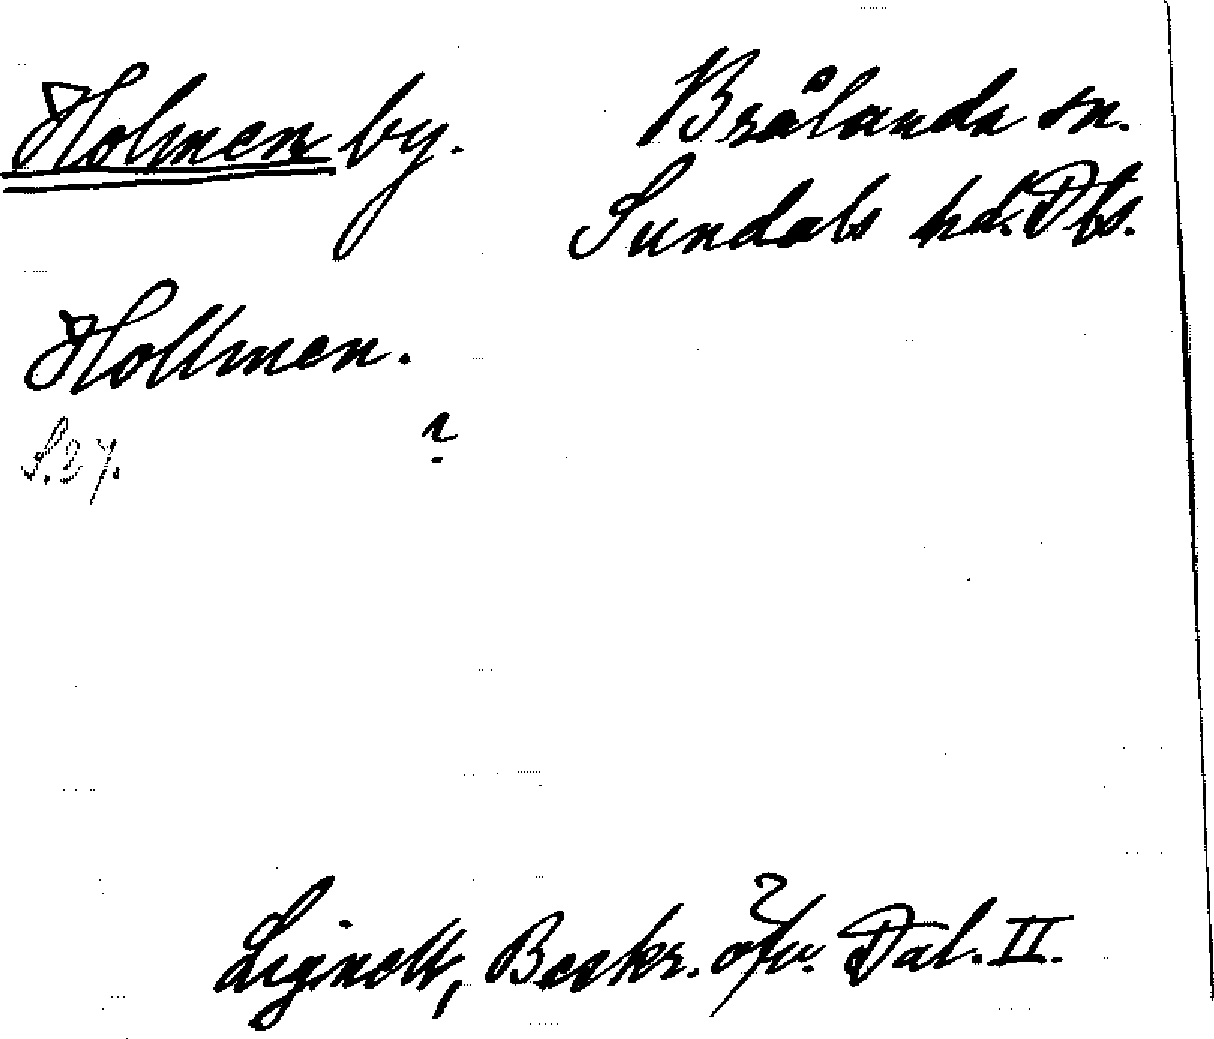 Holmen by. Brålanda sn.
Sundals hd. Dls.
Hollmen.
S. 27. ?
Lignell, Beskr. öfv. Dal. II.